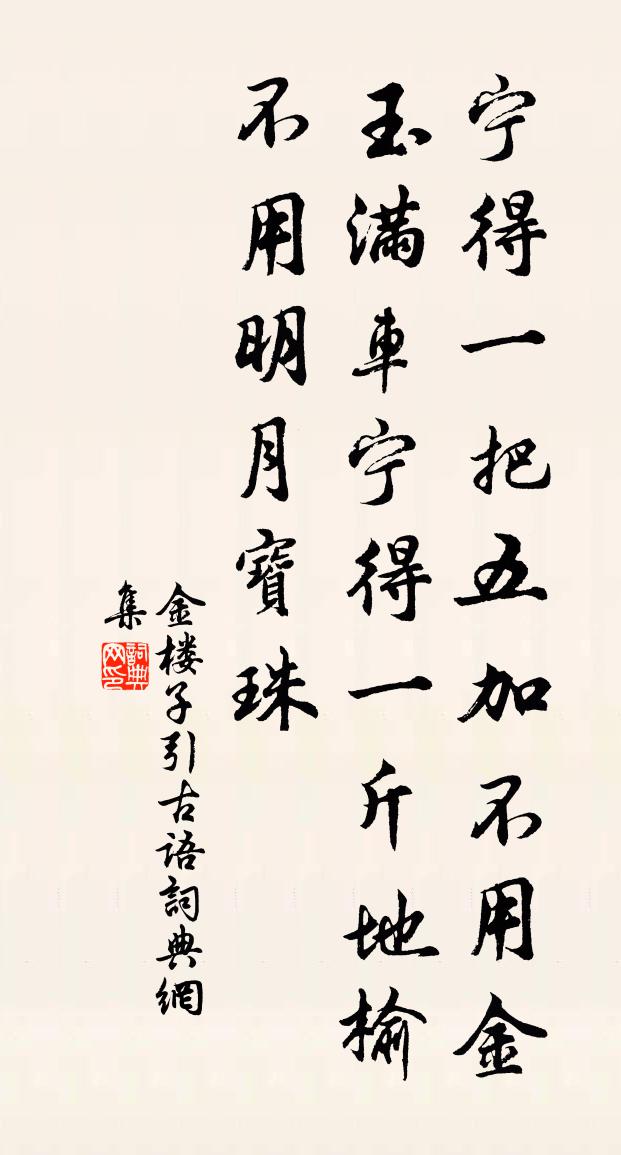 宁得一把五加不用金
玉满車宁得一斤地榆
不用明月寶珠
金楼子引古语詞典網
集
詞典
网印